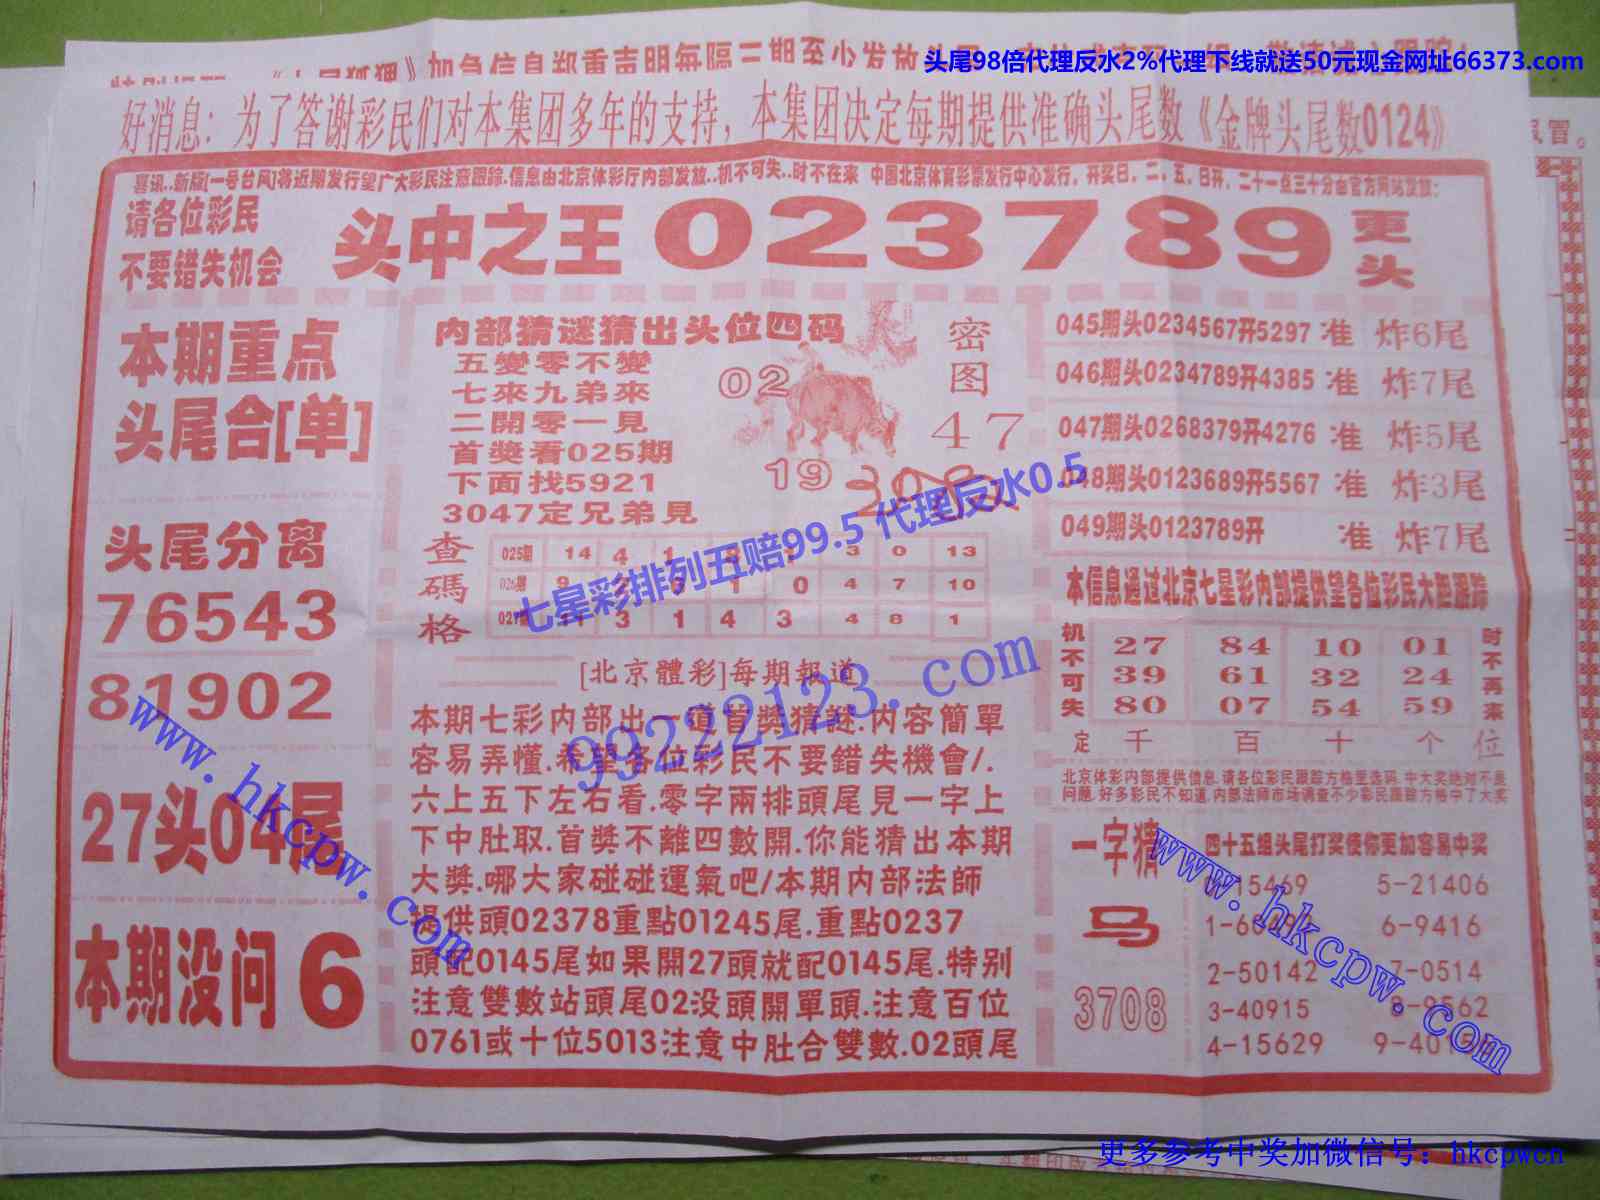 头尾98倍代理反水2%代理下线就送50元现金网址66373.com
好消息：为了答谢彩民们对本集团多年的支持，本集团决定每期提供准确头尾数《金牌头尾数0124》
喜讯..新版[一号台风]将近期发行望广大彩民注意跟踪.信息由北京体彩厅内部发放..机不可失..时不在来 中国北京体育彩票发行中心发行，开奖日，二，五，日开，二十一点三十分由官方网站发放：
请各位彩民
不要错失机会
头中之王 023789 更头
本期重点
头尾合[单]
头尾分离
76543
81902
27头04尾
本期没问 6
内部猜谜猜出头位四码
五變零不變
七來九弟來
二開零一見
首獎看025期
下面找5921
3047定兄弟見
02
19
密图
47
查碼格
025期 14 4 1 8 3 0 13
026期 9 1 0 4 7 10
3 1 4 3 4 8 1
七星彩排列五赔99.5 代理反水0.5
[北京體彩]每期報道
本期七彩内部出一道首獎猜謎.内容簡單
容易弄懂.希望各位彩民不要錯失機會/.
六上五下左右看.零字兩排頭尾見一字上
下中肚取.首獎不離四數開.你能猜出本期
大獎.哪大家碰碰運氣吧/本期内部法師
提供頭02378重點01245尾.重點0237
頭配0145尾如果開27頭就配0145尾.特别
注意雙數站頭尾02没頭開單頭.注意百位
0761或十位5013注意中肚合雙數.02頭尾
045期头0234567开5297 准 炸6尾
046期头0234789开4385 准 炸7尾
047期头0268379开4276 准 炸5尾
048期头0123689开5567 准 炸3尾
049期头0123789开 准 炸7尾
本信息通过北京七星彩内部提供望各位彩民大胆跟踪
机不可失
27 84 10 01
39 61 32 24
80 07 54 59
时不再来
定 千 百 十 个 位
北京体彩内部提供信息.请各位彩民跟踪方格里选码.中大奖绝对不是
问题.好多彩民不知道.内部法师市场调查不少彩民跟踪方格中了大奖
一字猜
马
3708
四十五组头尾打奖使你更加容易中奖
15469 5-21406
6-9416
2-50142 7-0514
3-40915 8-9562
4-15629
www.hkcpw.com
99222123.com
www.hkcpw.com
更多参考中奖加微信号：hkcpwcn